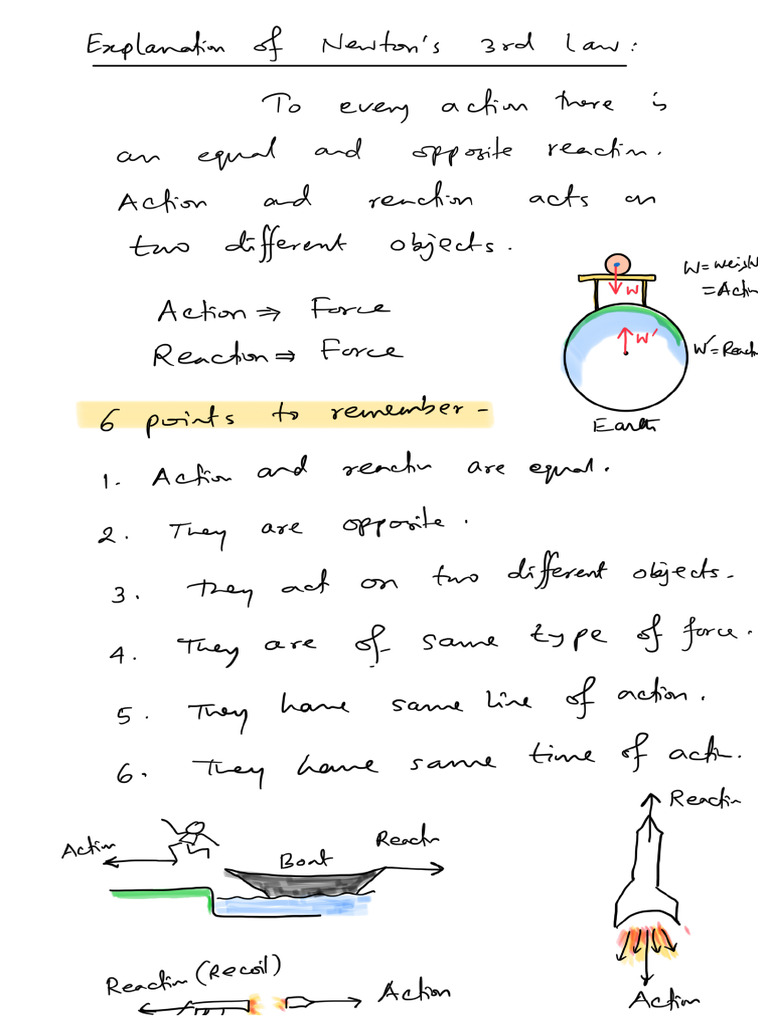 Explanation of Newton's 3rd Law:
To every action there is
an equal and opposite reactin.
Action and reaction acts on
two different objects.
W = weigh
= Actin
W
W' = Reacti
W'
Earth
Action ⇒ Force
Reaction ⇒ Force
6 points to remember -
1. Action and reactin are equal.
2. They are opposite.
3. They act on two different objects.
4. They are of same type of force.
5. They have same line of action.
6. They have same time of actin.
Reactin
Action
Boat
Reactn
Action
Reaction (Recoil)
Action